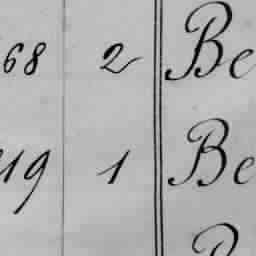 68 2 Be
19 1 Be